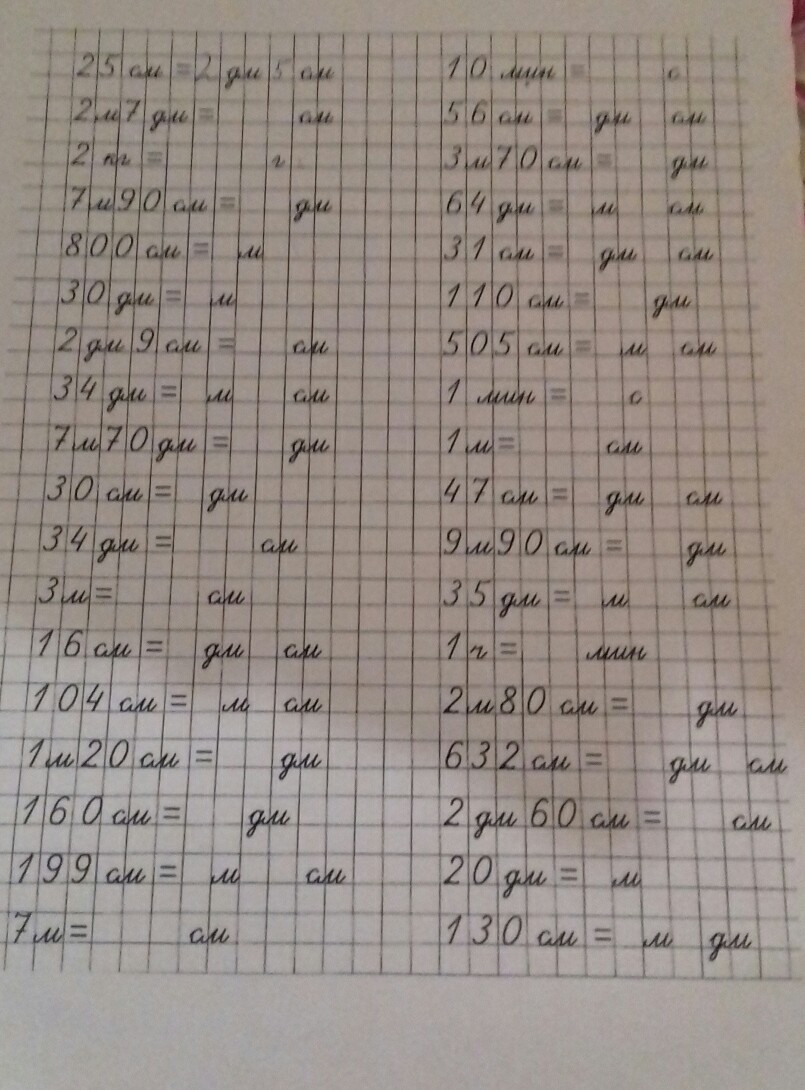 25 см = 2 дм 5 см
2м7 дм = см
2 кг = г
7м90 см = дм
800 см = м
30 дм = м
2 дм 9 см = см
34 дм = м см
7м70 дм = дм
30 см = дм
34 дм = см
3м = см
16 см = дм см
104 см = м см
1м20 см = дм
160 см = дм
199 см = м см
7м = см
10 мин = с
56 см = дм см
3м70 см = дм
64 дм = м см
31 см = дм см
110 см = дм
505 см = м см
1 мин = с
1м = см
47 см = дм см
9м90 см = дм
35 дм = м см
1 ч = мин
2м80 см = дм
632 см = дм см
2 дм 60 см = см
20 дм = м
130 см = м дм